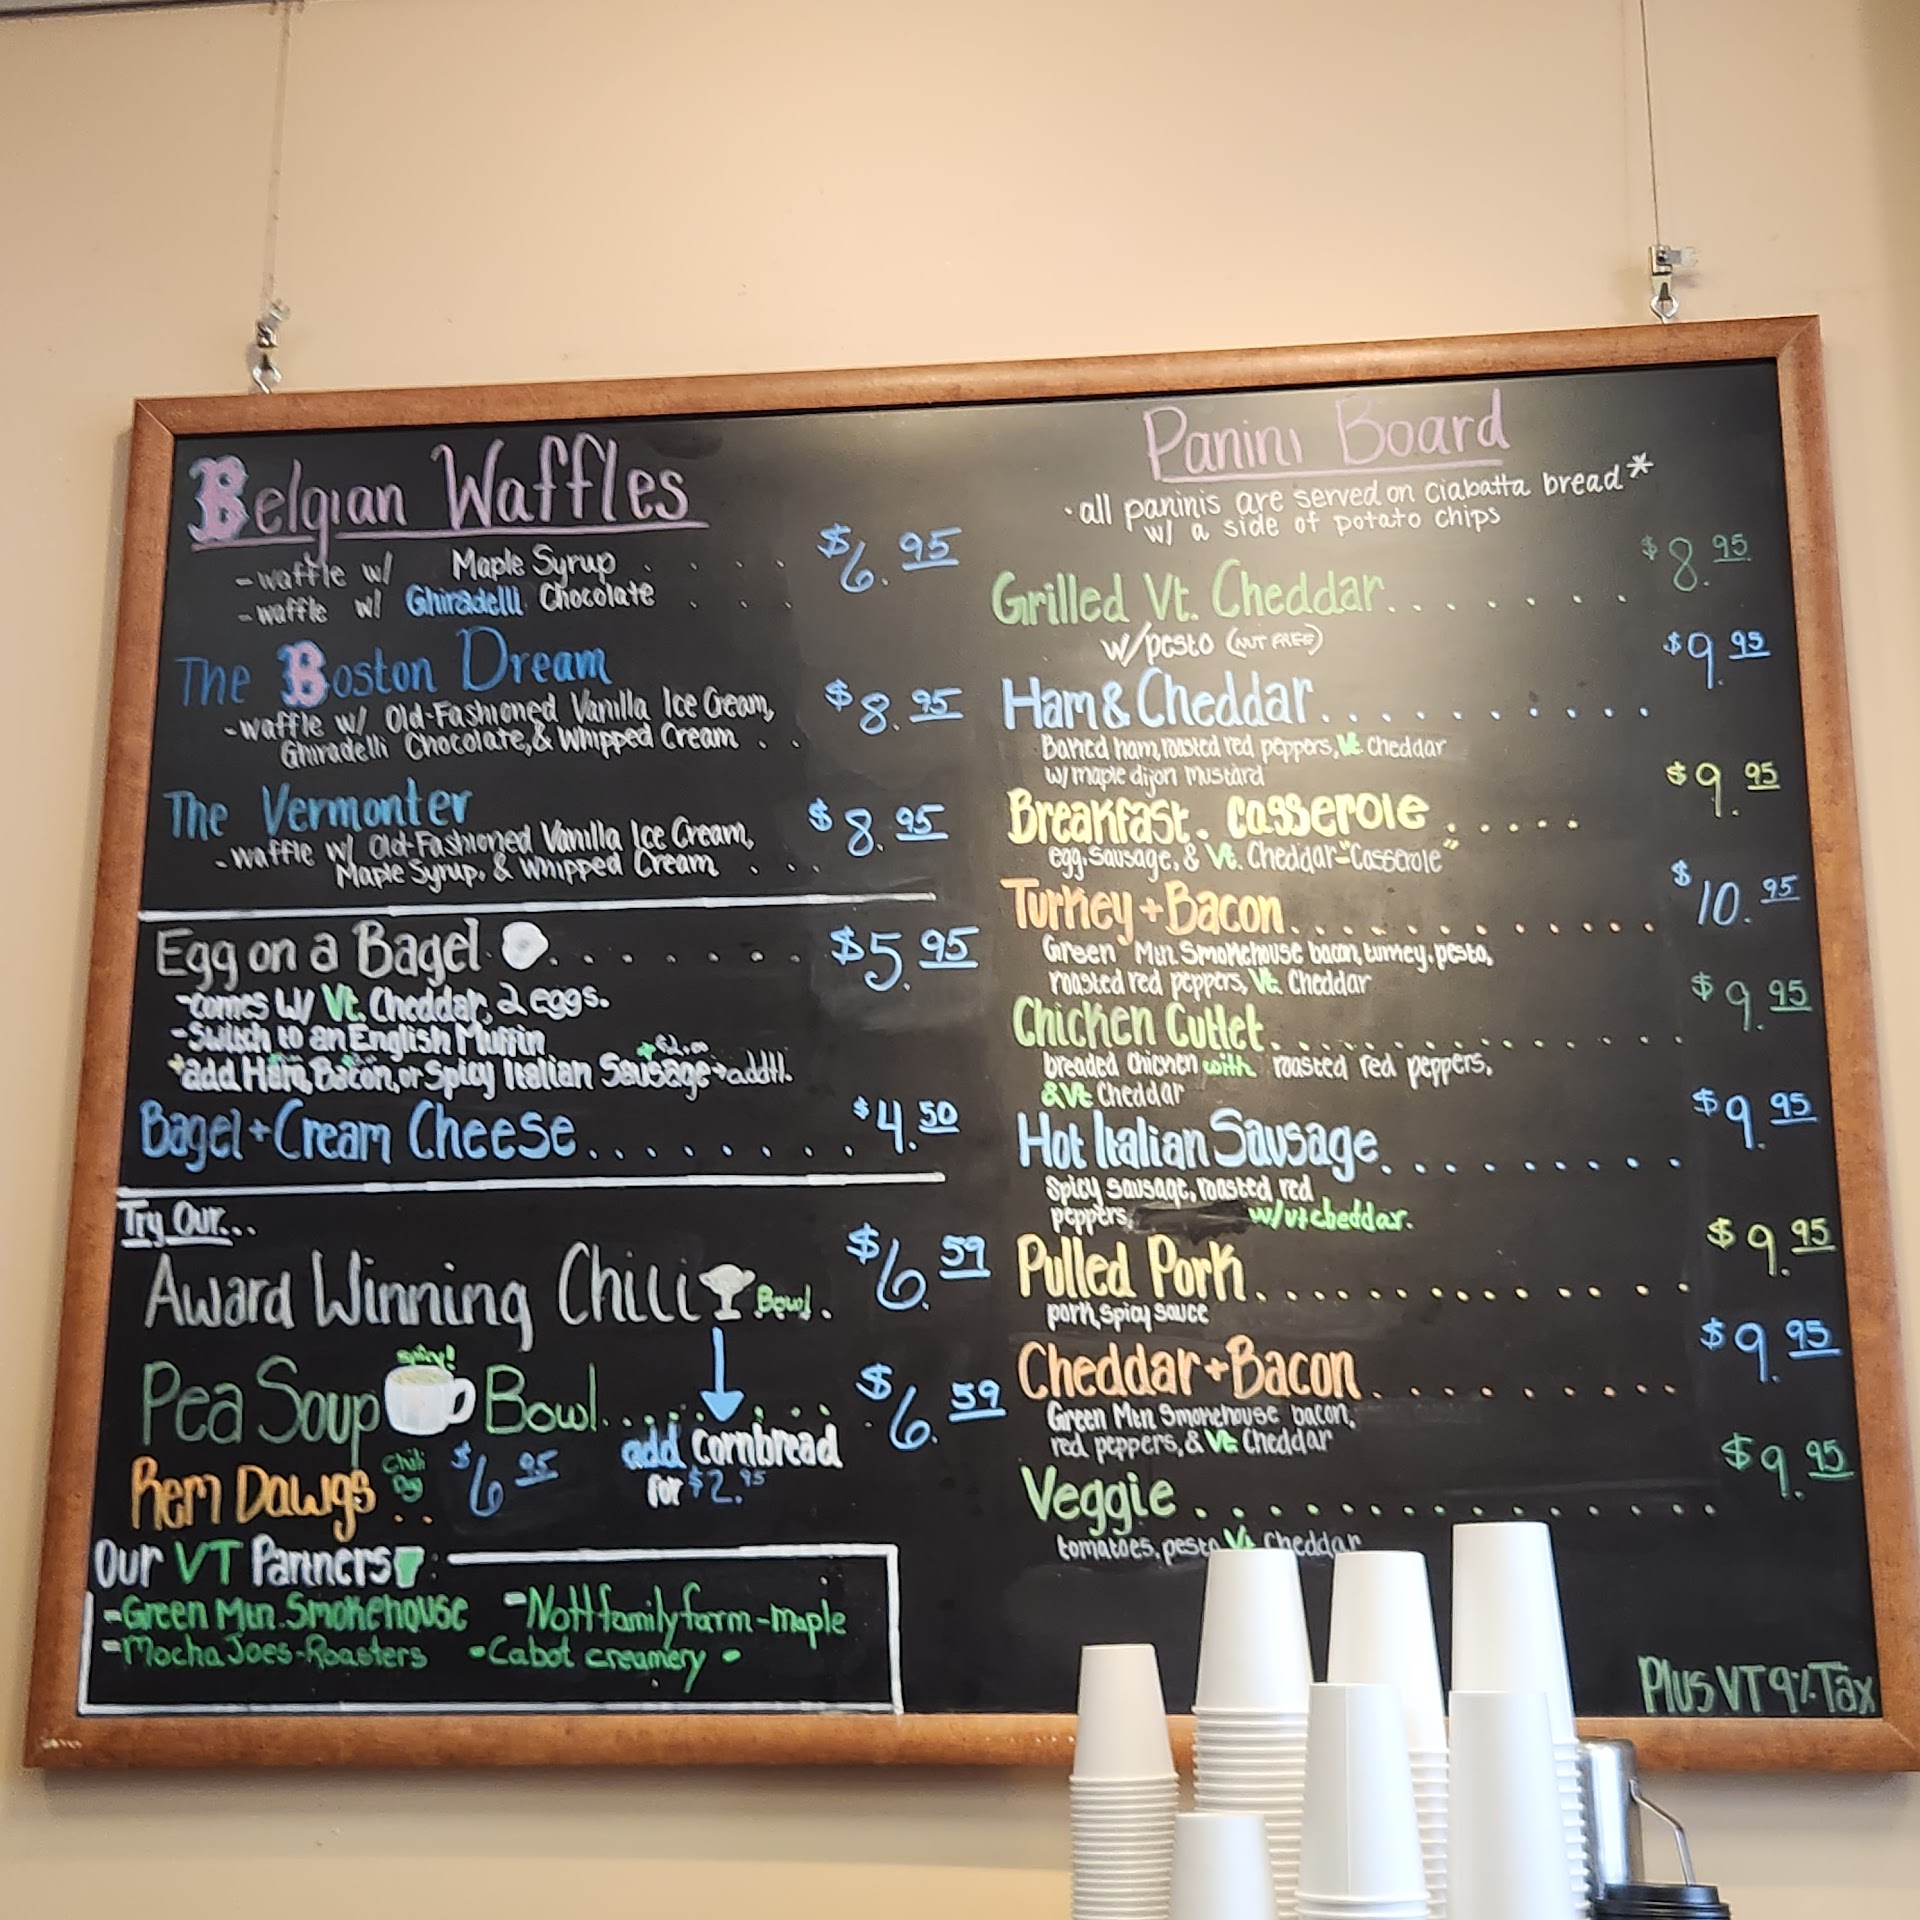 Belgian Waffles
- waffle w/ Maple Syrup . . . . $6.95
- waffle w/ Ghiradelli Chocolate . . . .
The Boston Dream
- waffle w/ Old-Fashioned Vanilla Ice Cream, $8.95
Ghiradelli Chocolate, & Whipped Cream . .
The Vermonter
- waffle w/ Old-Fashioned Vanilla Ice Cream, $8.95
Maple Syrup, & Whipped Cream . . .
Egg on a Bagel . . . . . . . . $5.95
- comes w/ Vt. Cheddar, 2 eggs.
- Switch to an English Muffin
+$2.00
+add Ham, Bacon, or Spicy Italian Sausage → addtl.
Bagel + Cream Cheese . . . . . . . . $4.50
Try Our...
Award Winning Chili Bowl . $6.59
spicy!
Pea Soup Bowl . . . . . . . . $6.59
add Cornbread
for $2.95
Rem Dawgs Chili Dog . . $6.95
Our VT Partners:
- Green Mtn. Smokehouse
- Nott family farm - maple
- Mocha Joes - Roasters
• Cabot creamery •
Panini Board
• all paninis are served on ciabatta bread*
w/ a side of potato chips
Grilled Vt. Cheddar . . . . . . . $8.95
w/pesto (NUT FREE)
Ham & Cheddar . . . . . . . . . . $9.95
Baked ham, roasted red peppers, Vt. Cheddar
w/ maple dijon mustard
Breakfast. Casserole . . . . . $9.95
egg, sausage, & Vt. Cheddar-"Casserole"
Turkey + Bacon . . . . . . . . . . . . $10.95
Green Mtn Smokehouse bacon, turkey, pesto,
roasted red peppers, Vt. Cheddar
Chicken Cutlet . . . . . . . . . . . . $9.95
breaded chicken with roasted red peppers,
& Vt Cheddar
Hot Italian Sausage . . . . . . . . . $9.95
Spicy sausage, roasted red
peppers, w/vt cheddar.
Pulled Pork . . . . . . . . . . . . . $9.95
pork, spicy sauce
Cheddar + Bacon . . . . . . . . . $9.95
Green Mtn Smokehouse bacon,
red peppers, & Vt Cheddar
Veggie . . . . . . . . . . . . . . . $9.95
tomatoes, pesto Vt Cheddar
Plus VT 9% Tax